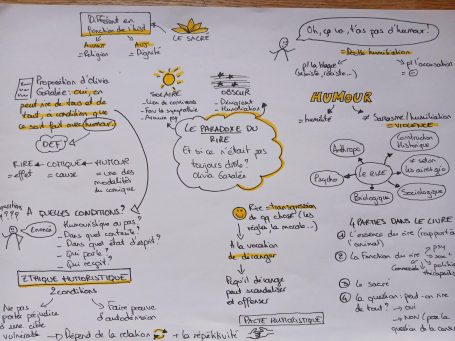 Différent en
fonction de l'hist
AVANT
= Religion
AUJ
= Dignité
LE SACRÉ
Oh, ça va, t'as pas d'humour!
= Double humiliation
p/ la blague
(sexiste, raciste...)
p/ l'accusation
Proposition d'Olivia
Gazalée: oui, on
peut rire de tous et de
tout, à condition que
ce soit fait avec humour
DEF
RIRE
= effet
COMIQUE
= cause
HUMOUR
= une des
modalités
du comique
SOLAIRE
- Lien de
- Fou la sympathie
OBSCUR
- Dénigrant
- Humiliation
LE PARADOXE DU
RIRE
Et si ce n'était pas
toujours drôle?
Olivia Gazalé
HUMOUR
= humilité
≠ Sarcasme/humiliation
VIOLENCE
Anthropo
Construction
Historique
Psycho
LE RIRE
≠ selon
les
Biologique
Sociologique
????
Énoncé
À QUELLES CONDITIONS?
- Humoristique ou pas?
- Dans quel contexte?
- Dans quel état d'esprit?
- Qui parle?
- Qui reçoit?
ÉTHIQUE HUMORISTIQUE
2 conditions
Ne pas
porter préjudice
à une cible
vulnérable
Faire preuve
d'autodérision
Dépend de la relation + la répétitivité
Rire = transgression
de qq chose (les
règles, la morale...)
À la vocation
de déranger
Pcq'il dérange
peut scandaliser
et offenser
PACTE HUMORISTIQUE
4 PARTIES DANS LE LIVRE
1. L'essence du rire (rapport à
l'animal)
2. La fonction du rire
psy
soc
politique
3. Le sacré
4. La question: peut-on rire
de tout?
oui
NON (pas la
question de la